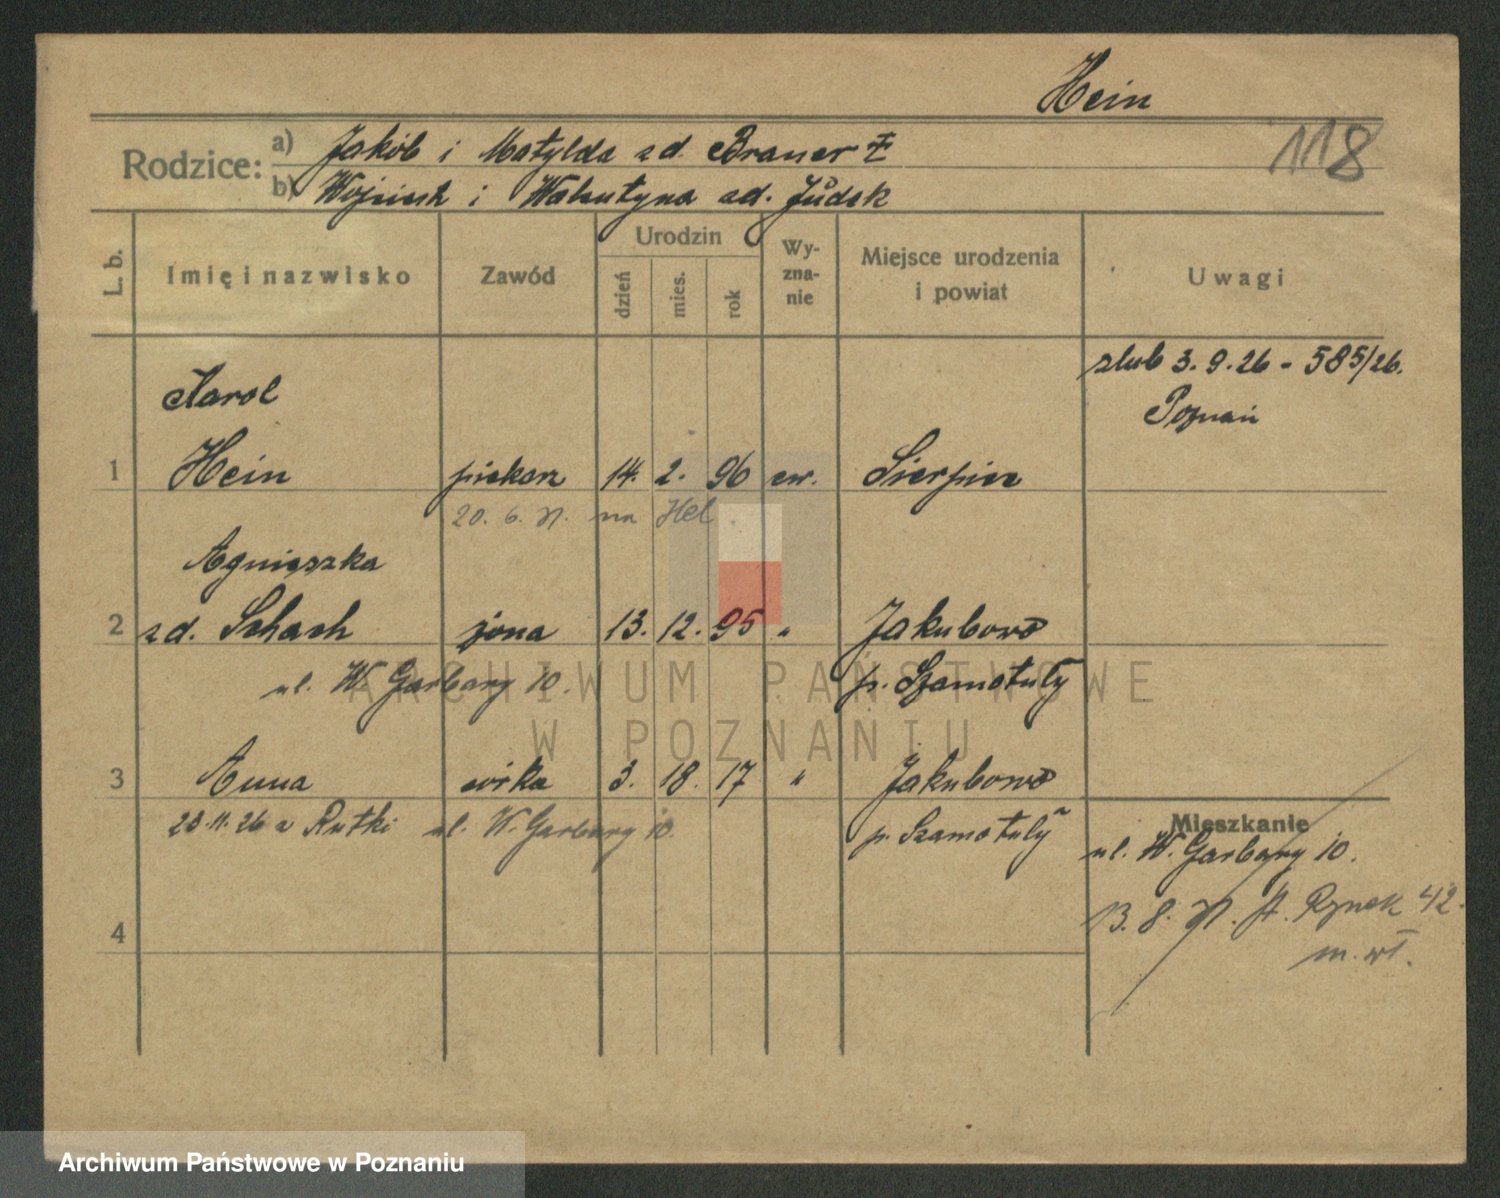 Hein
118
Rodzice:
a) Jakób i Matylda zd. Brauer
b) Wojciech i Walentyna zd. Júdek
L. b.
Imię i nazwisko
Zawód
Urodzin
dzień
mies.
rok
Wy-
zna-
nie
Miejsce urodzenia
i powiat
Uwagi
ślub 3. 9. 26 - 585/26.
Poznań
Karol
1 Hein piekarz 14. 2. 96 ew. Sierpiec
20. 6. na Hel
Agnieszka
2 zd. Schach żona 13. 12. 95 " Jakubowo
ul. W. Garbary 10. p. Szamotuły
3 Anna córka 3. 18. 17 " Jakubowo
23.11.26 z Rutki ul. W. Garbary 10. p. Szamotuły
Mieszkanie
ul. W. Garbary 10.
13. 8. St. Rynek 42.
m. wł.
4
ARCHIWUM PAŃSTWOWE
W POZNANIU
Archiwum Państwowe w Poznaniu